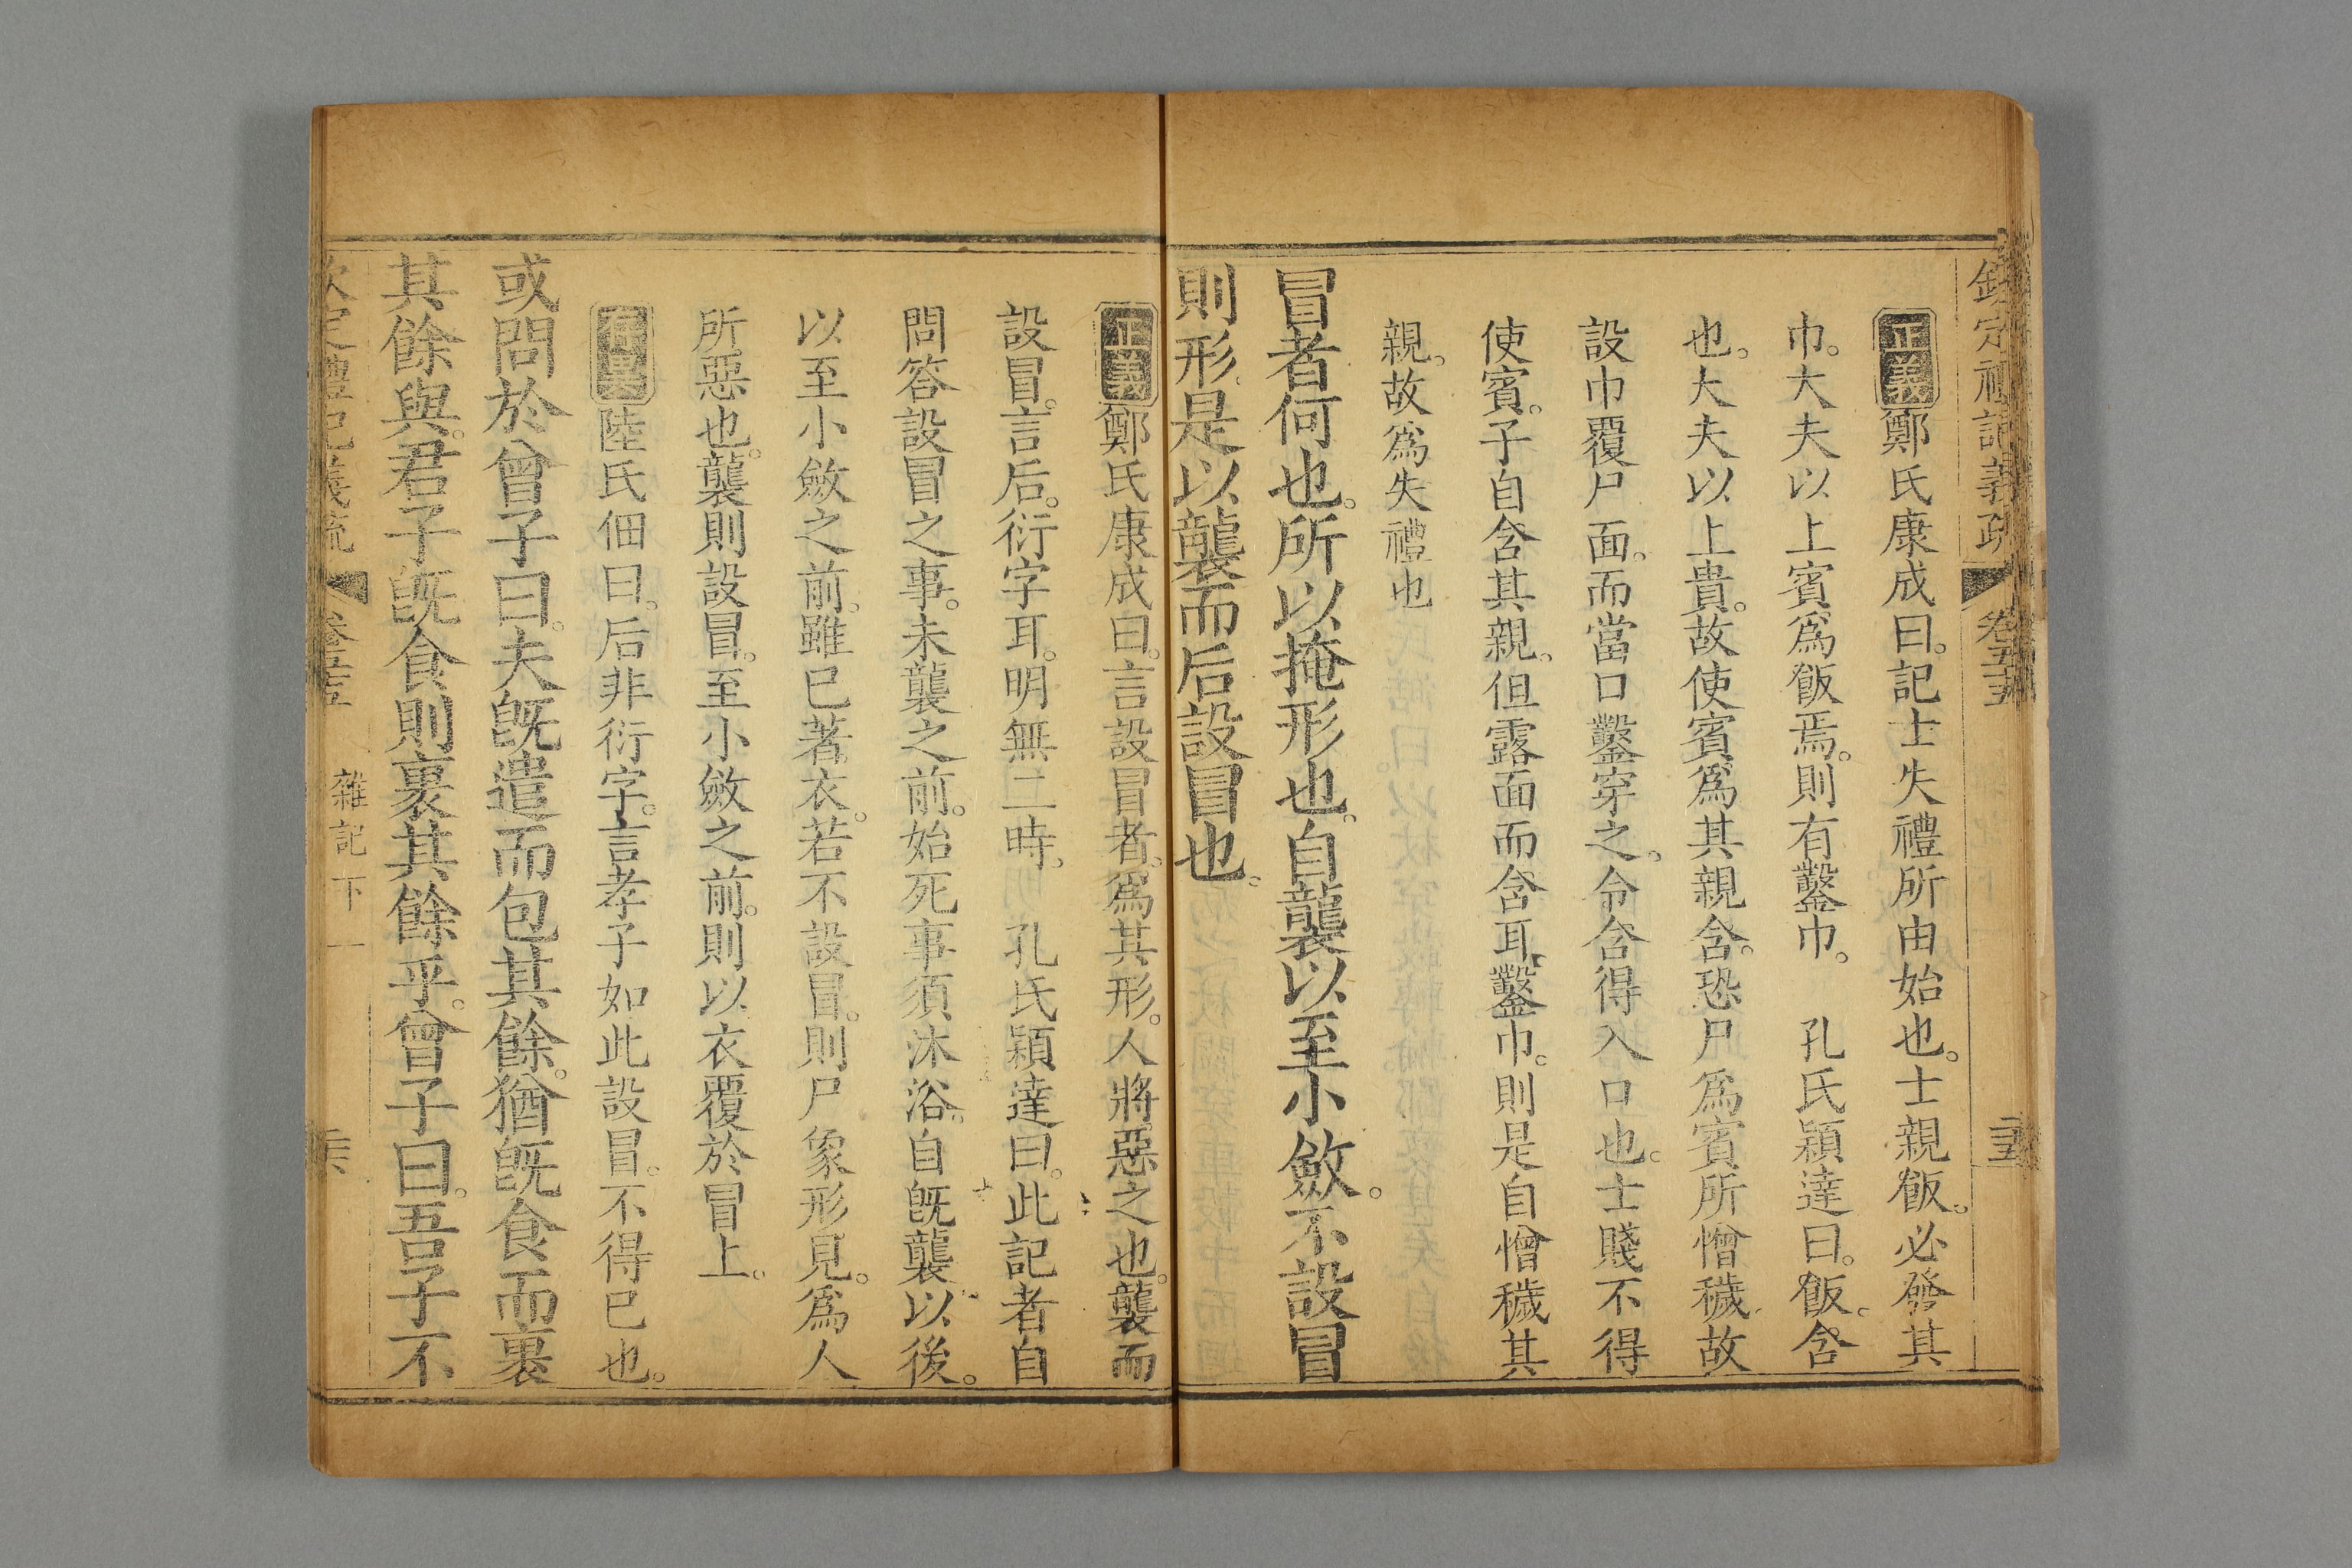 欽定禮記義疏 卷五十五 二十五
正義鄭氏康成曰。記士失禮所由始也。士親飯。必發其
巾。大夫以上賓爲飯焉。則有鑿巾。 孔氏穎達曰。飯。含
也。大夫以上貴。故使賓爲其親含。恐尸爲賓所憎穢。故
設巾覆尸面。而當口鑿穿之。令含得入口也。士賤不得
使賓。子自含其親。但露面而含耳。鑿巾。則是自憎穢其
親。故爲失禮也
冒者何也。所以掩形也。自襲以至小斂。不設冒
則形。是以襲而后設冒也。
正義鄭氏康成曰。言設冒者。爲其形。人將惡之也。襲而
設冒。言后。衍字耳。明無二時。 孔氏穎達曰。此記者自
問答設冒之事。未襲之前。始死事須沐浴。自旣襲以後。
以至小斂之前。雖已著衣。若不設冒。則尸象形見。爲人
所惡也。襲則設冒。至小斂之前。則以衣覆於冒上。
存異陸氏佃曰。后非衍字。言孝子如此設冒。不得已也。
或問於曾子曰。夫旣遣而包其餘。猶旣食而裹
其餘與。君子旣食則裹其餘乎。曾子曰。吾子不
欽定禮記義疏 卷五十五 雜記下 二十六